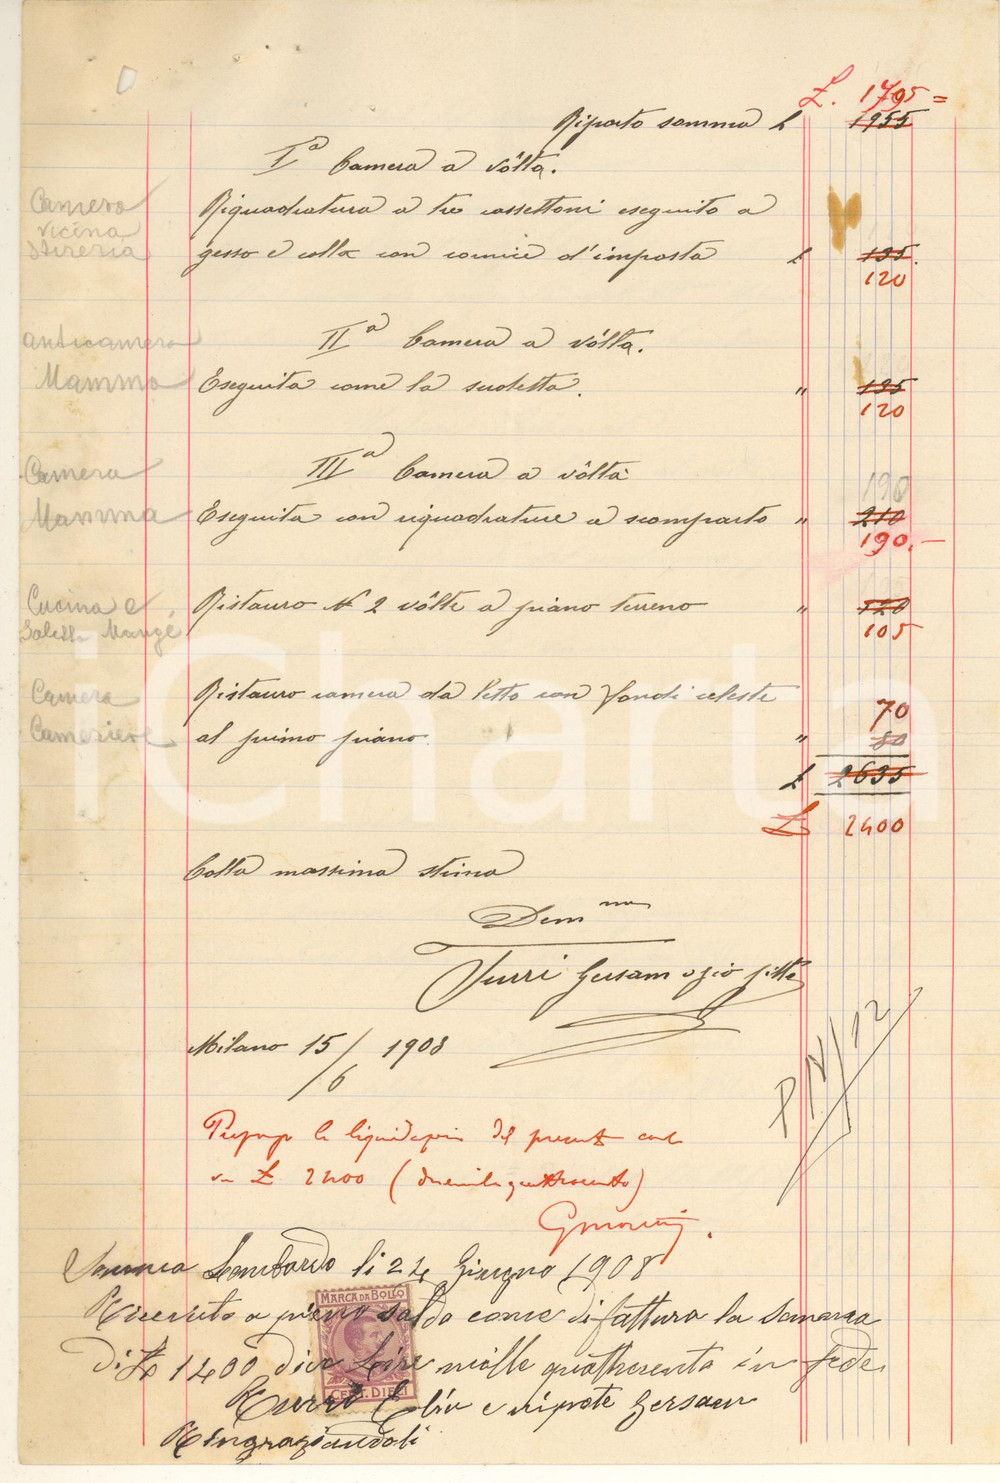 £. 1795=
Riporto somma £ 1955
Iª Camera a vôlta.
Camera
vicina
Stireria
Riquadratura a tre cassettoni eseguito a
gesso e colla con cornice d'imposta £ 135.
120
anticamera
IIª Camera a vôlta.
Mamma
Eseguita come la sudetta. " 135
120
IIIª Camera a vôlta
Camera
190
Mamma
Eseguita con riquadrature a scomparto " 210
190.—
Cucina e
Ristauro Nº 2 vôlte a piano terreno " 120
105
Camera
Ristauro camera da letto con fondi celeste
70
Cameriere
al primo piano. " 80
£ 2635
£ 2400
iCharta
Colla massima stima
Dem mo
Turri Gersam zio
Milano 15/6 1908
Propongo la liquidazione del presente
in £ 2400 (duemilaquattrocento)
Lombardo li 24 Giugno 1908
MARCA DA BOLLO
Ricevuto a pieno saldo come di fattura la somma
di £ 1400 dico Lire mille quattrocento in fede
CENT. DIECI
Turri e nipote Gersam
Ringraziandoli